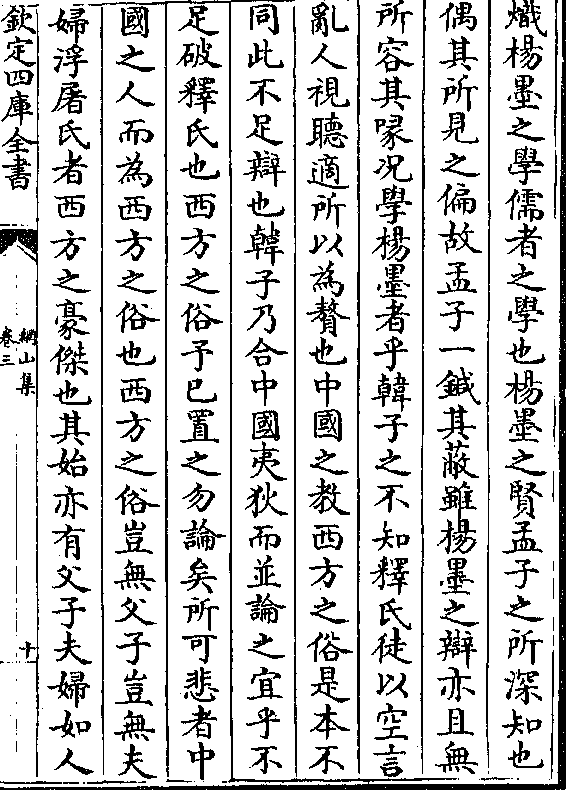 熾楊墨之學儒者之學也楊墨之賢孟子之所深知也
偶其所見之偏故孟子一鍼其蔽雖楊墨之辯亦且無
所容其喙况學楊墨者乎韓子之不知釋氏徒以空言
亂人視聽適所以為贅也中國之教西方之俗是本不
同此不足辯也韓子乃合中國夷狄而並論之宜乎不
足破釋氏也西方之俗予已置之勿論矣所可悲者中
國之人而為西方之俗也西方之俗豈無父子豈無夫
婦浮屠氏者西方之豪傑也其始亦有父子夫婦如人
欽定四庫全書
網山集
卷三
十